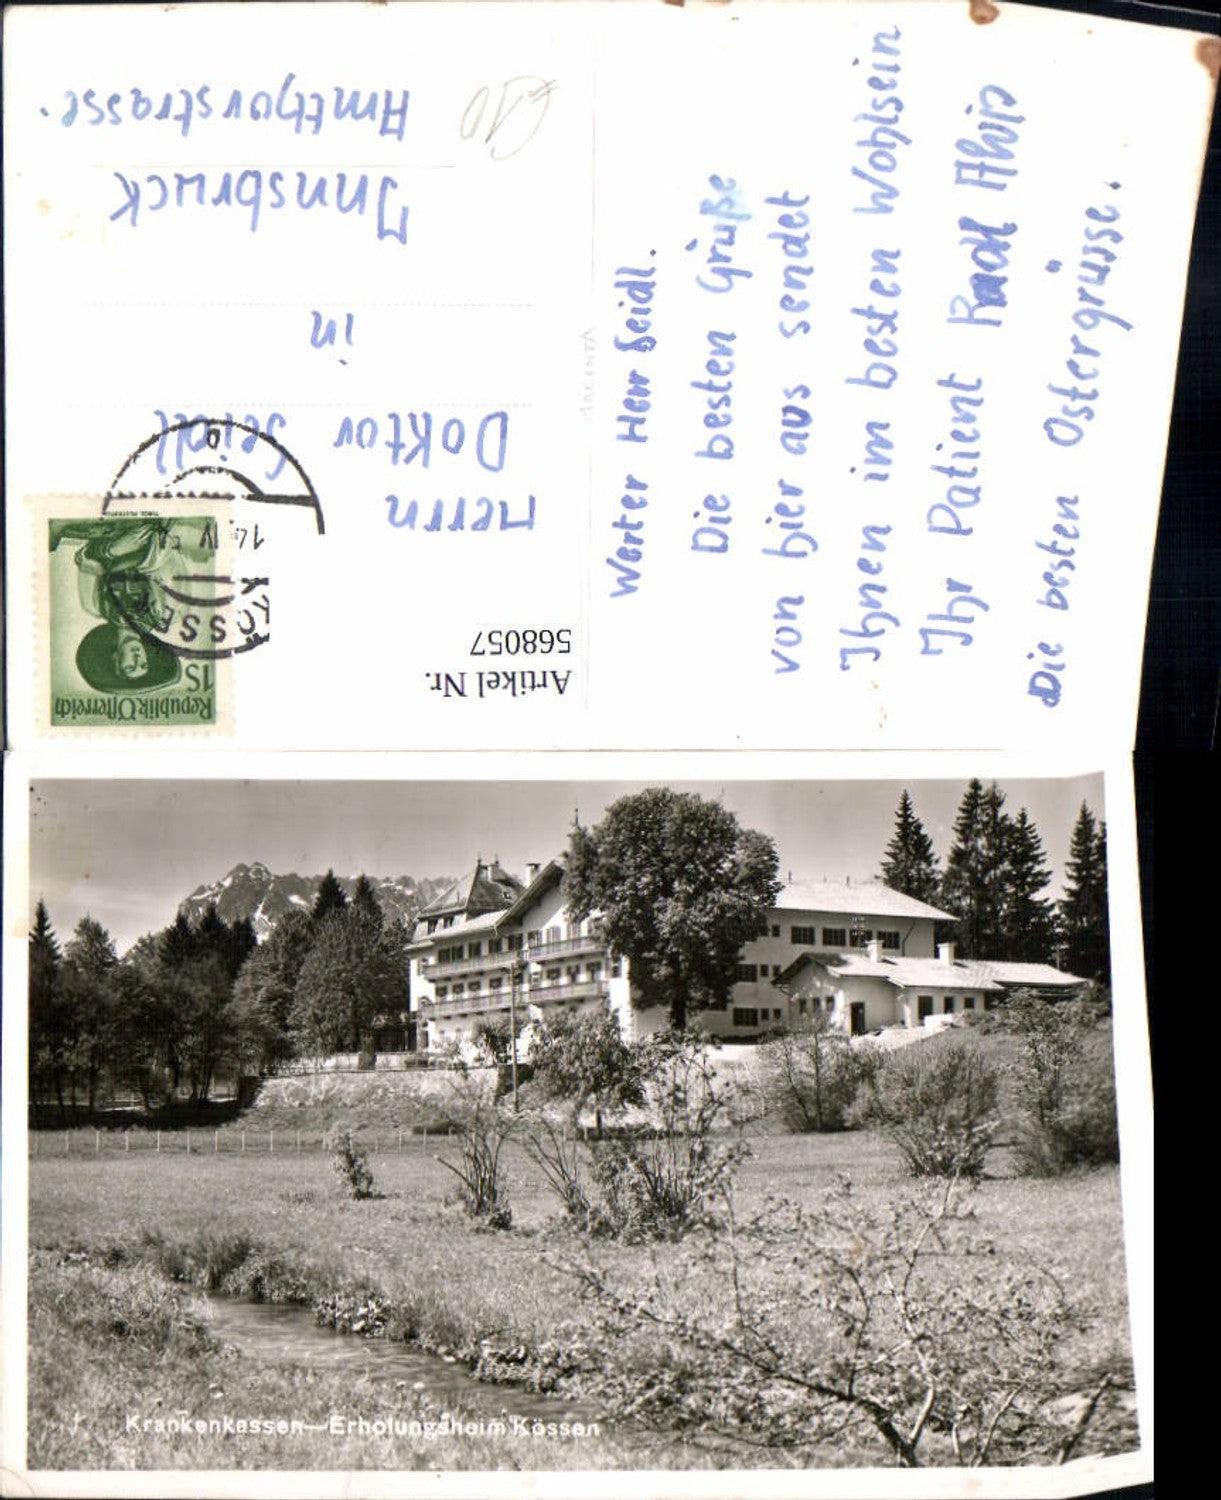 Werter Herr Seidl.
Die besten Grüße
von hier aus sendet
Ihnen im besten Wohlsein
Ihr Patient Radl Alvis
Die besten Ostergrüsse.
Artikel Nr.
568057
Republik Österreich
1S
KÖSSEN
14. IV
Herrn
Doktor Seidl
in
Innsbruck
Amthorstrasse.
€10
Krankenkassen—Erholungsheim Kössen